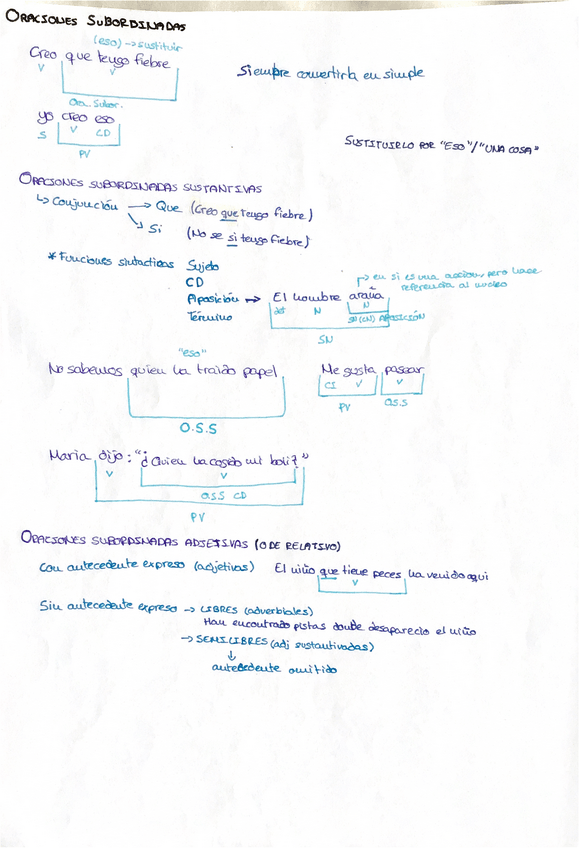 ORACIONES SUBORDINADAS
(eso) → sustituir
Creo que tengo fiebre
V V
Ora. Subor.
Siempre convertirla en simple
yo creo eso
S V CD
PV
SUSTITUIRLO POR "ESO"/"UNA COSA"
ORACIONES SUBORDINADAS SUSTANTIVAS
↳ Conjunción → Que (Creo que tengo fiebre)
↘ Si (No se si tengo fiebre)
* Funciones sintacticas Sujeto
CD
Aposición → El hombre araña
Término
→ en si es una accion, pero hace
referencia al nucleo
det N N
SN(CN) APOSICIÓN
SN
"eso"
No sabemos quien ha traido papel
O.S.S
Me gusta pasear
CI V V
PV O.S.S
Maria dijo: "¿Quien ha cogido mi boli?"
V V
O.S.S CD
PV
ORACIONES SUBORDINADAS ADJETIVAS (O DE RELATIVO)
Con antecedente expreso (adjetivas) El niño que tiene peces ha venido aqui
V
Sin antecedente expreso → LIBRES (adverbiales)
Han encontrado pistas donde desaparecio el niño
→ SEMILIBRES (adj sustantivadas)
↓
antecedente omitido